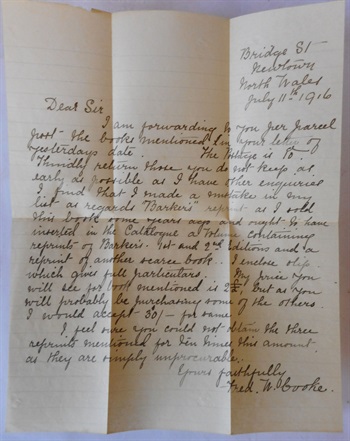 Bridge St
Newtown
North Wales
July 11th 1916
Dear Sir
I am forwarding to you per parcel
post the books mentioned in your letter of
yesterdays date. The postage is
Kindly return those you do not keep as
early as possible as I have other enquiries
I find that I made a mistake in my
list as regards Barker's reprint as I sold
this book some years ago and ought to have
inserted in the Catalogue a volume containing
reprints of Barkers 1st and 2nd Editions and a
reprint of another scarce book. I enclose slip
which gives full particulars. My price you
will see for book mentioned is but as you
will probably be purchasing some of the others
I would accept 30/- for same.
I feel sure you could not obtain the three
reprints mentioned for ten times this amount
as they are simply unprocurable.
Yours faithfully
Fred. W. Cooke.